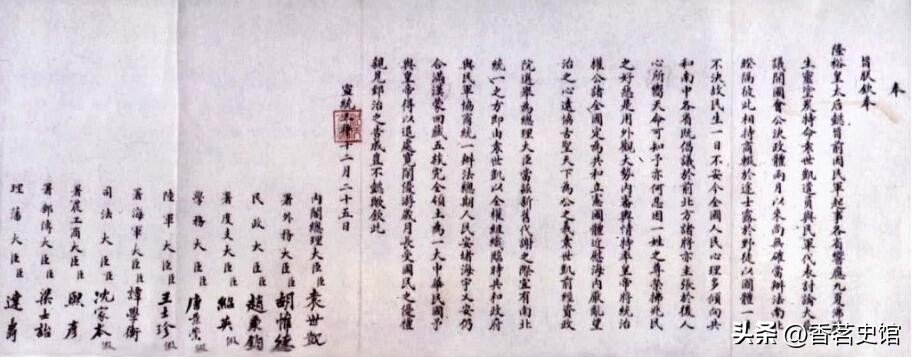 奉
旨朕欽奉
隆裕皇太后懿旨前因民軍起事各省響應九夏沸騰
生靈塗炭特命袁世凱遣員與民軍代表討論大局
議開國會公決政體兩月以來尚無確當辦法南北
暌隔彼此相持商輟於途士露於野徒以國體一日
不決故民生一日不安今全國人民心理多傾向共
和南中各省既倡議於前北方諸將亦主張於後人
心所嚮天命可知予亦何忍因一姓之尊榮拂兆民
之好惡是用外觀大勢內審輿情特率皇帝將統治
權公諸全國定為共和立憲國體近慰海內厭亂望
治之心遠協古聖天下為公之義袁世凱前經資政
院選舉為總理大臣當茲新舊代謝之際宜有南北
統一之方即由袁世凱以全權組織臨時共和政府
與民軍協商統一辦法總期人民安堵海宇乂安仍
合滿漢蒙回藏五族完全領土為一大中華民國予
與皇帝得以退處寬閒優游歲月長受國民之優禮
親見郅治之告成豈不懿歟欽此
宣統三年十二月二十五日
內閣總理大臣臣袁世凱
署外務大臣臣胡惟德
民政大臣臣趙秉鈞
署度支大臣臣紹英假
學務大臣臣唐景崇假
陸軍大臣臣王士珍假
署海軍大臣臣譚學衡
司法大臣臣沈家本假
署農工商大臣臣熙彥
署郵傳大臣臣梁士詒
理藩大臣臣達壽
头条 @香茗史馆